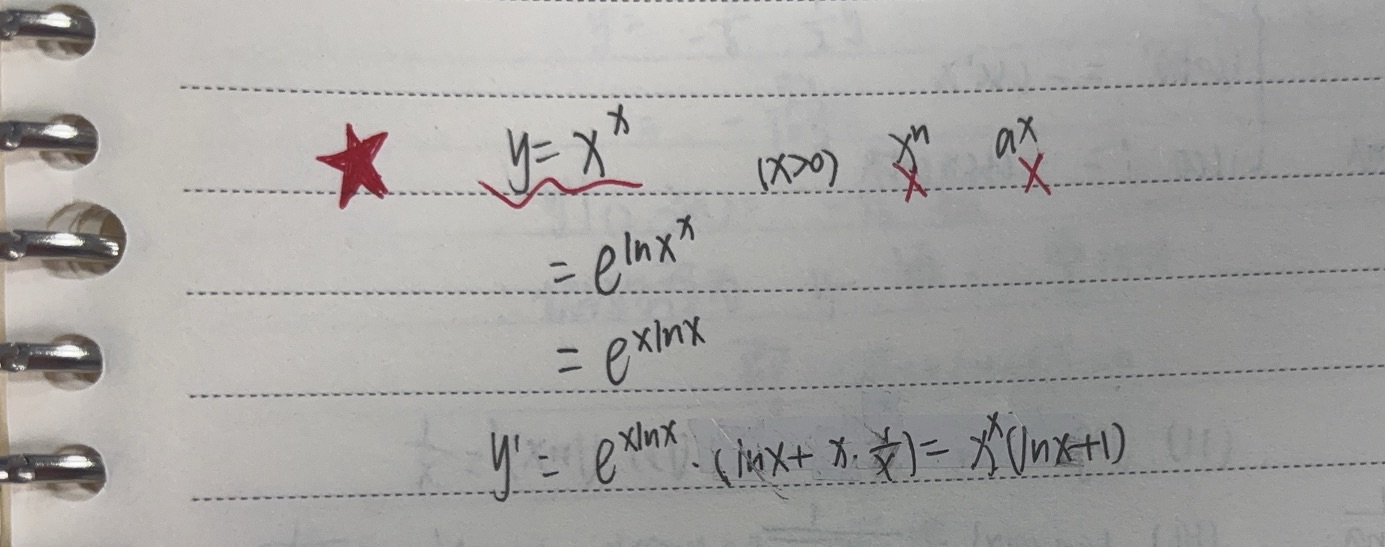 y = x^x (x>0) x^n a^x
x x
= e^{ln x^x}
= e^{x ln x}
y' = e^{x ln x} · (ln x + x · 1/x) = x^x (ln x + 1)